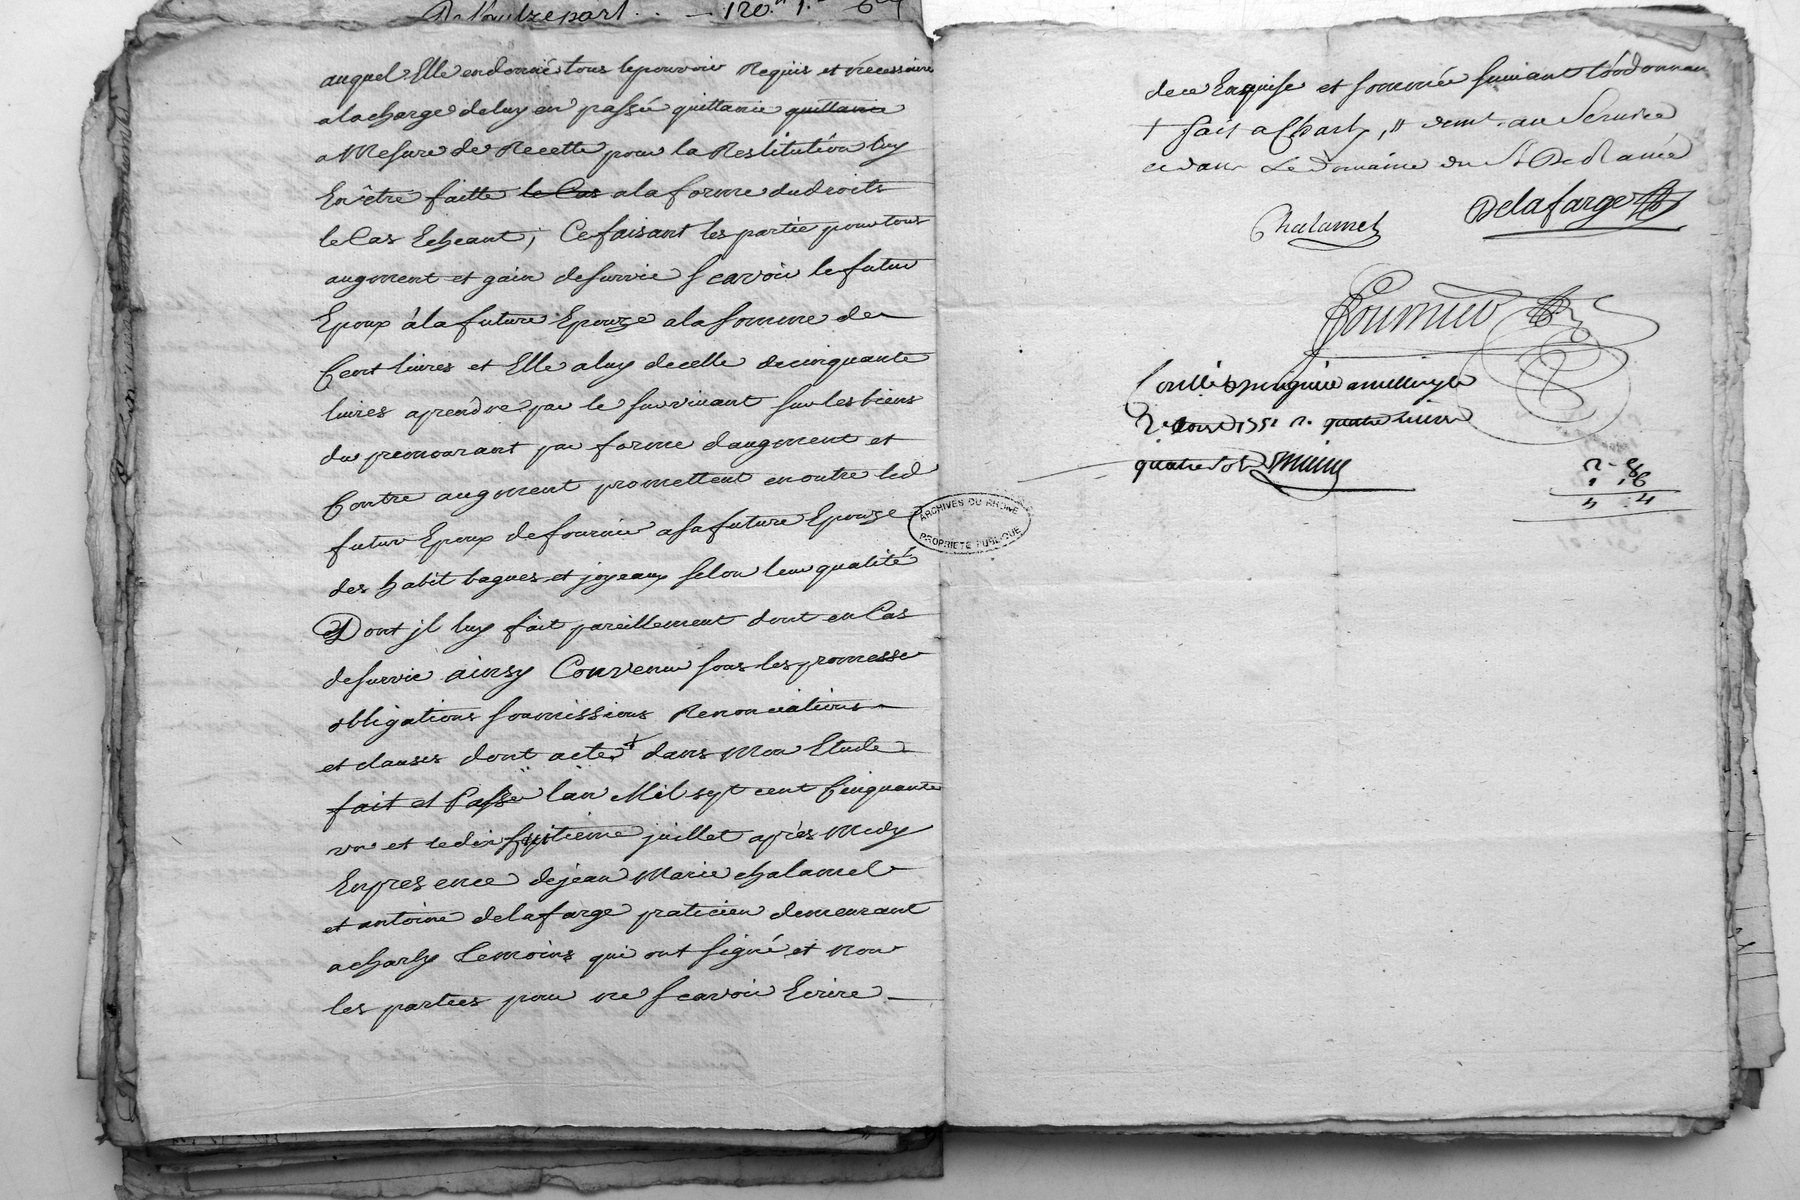 De l'autre part . . — 120.ᴸᴸ 1.ˢ 6.ᵈ
auquel Elle en donne tous le pouvoir Requis et necessaire
a la charge de luy en passé quittance quittance
a Mesure de Recette pour la Restitution luy
En être faitte le Cas a la forme du droits
le Cas Echeant, Ce faisant les partie pour tous
augment et gain de survie scavoir le futur
Epoux à la future Epouze a la somme de
Cent livres et Elle a luy de celle de cinquante
livres a prendre par le survivant sur les biens
du premourant par forme d'augment et
Contre augment promettent en outre led
futur Epoux de fournir a sa future Epouze
des habit bagues et joyeaux selon leur qualité
Dont jl luy fait pareillement dont en Cas
de survie ainsy Convenu sous les promesse
obligations soumissions Renonciations
et clauses dont acte † dans Mon Etude
fait et Passé l'an Mil sept cent Cinquante
un et le dix huitieme juillet après Midy
En presence de jean Marie chalamel
et antoine delafarge praticien demeurant
a charly temoins qui ont signé et non
les parties pour ne scavoir Ecrire
de ce Enquise et sommée suivant l'ordonnan
† fait a Charly, et dem.t au Service
et dans Le Domaine du Sr De Ramée
Chalamel Delafarge
Fournier
a millery le
1751 R. quatre livres
quatre sols
2 - 8
4 4
ARCHIVES DU RHONE
PROPRIETE PUBLIQUE